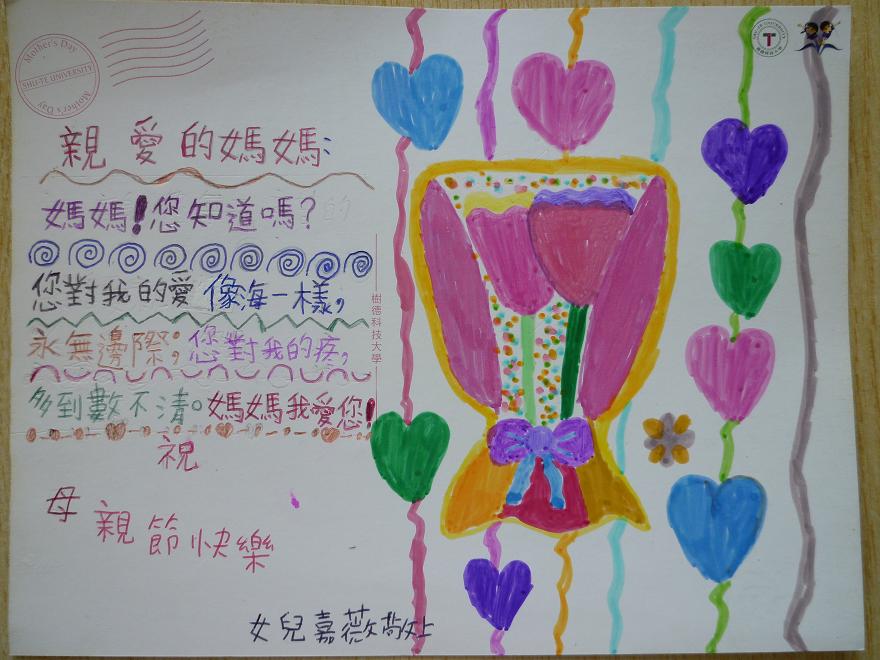 Mother's Day
SHU-TE UNIVERSITY
Mother's Day
親愛的媽媽:
媽媽!您知道嗎?
您對我的愛像海一樣,
永無邊際;您對我的疼,
多到數不清。媽媽我愛您!
祝
母親節快樂
女兒嘉薇敬上
樹德科技大學
SHU-TE UNIVERSITY
T
樹德科技大學